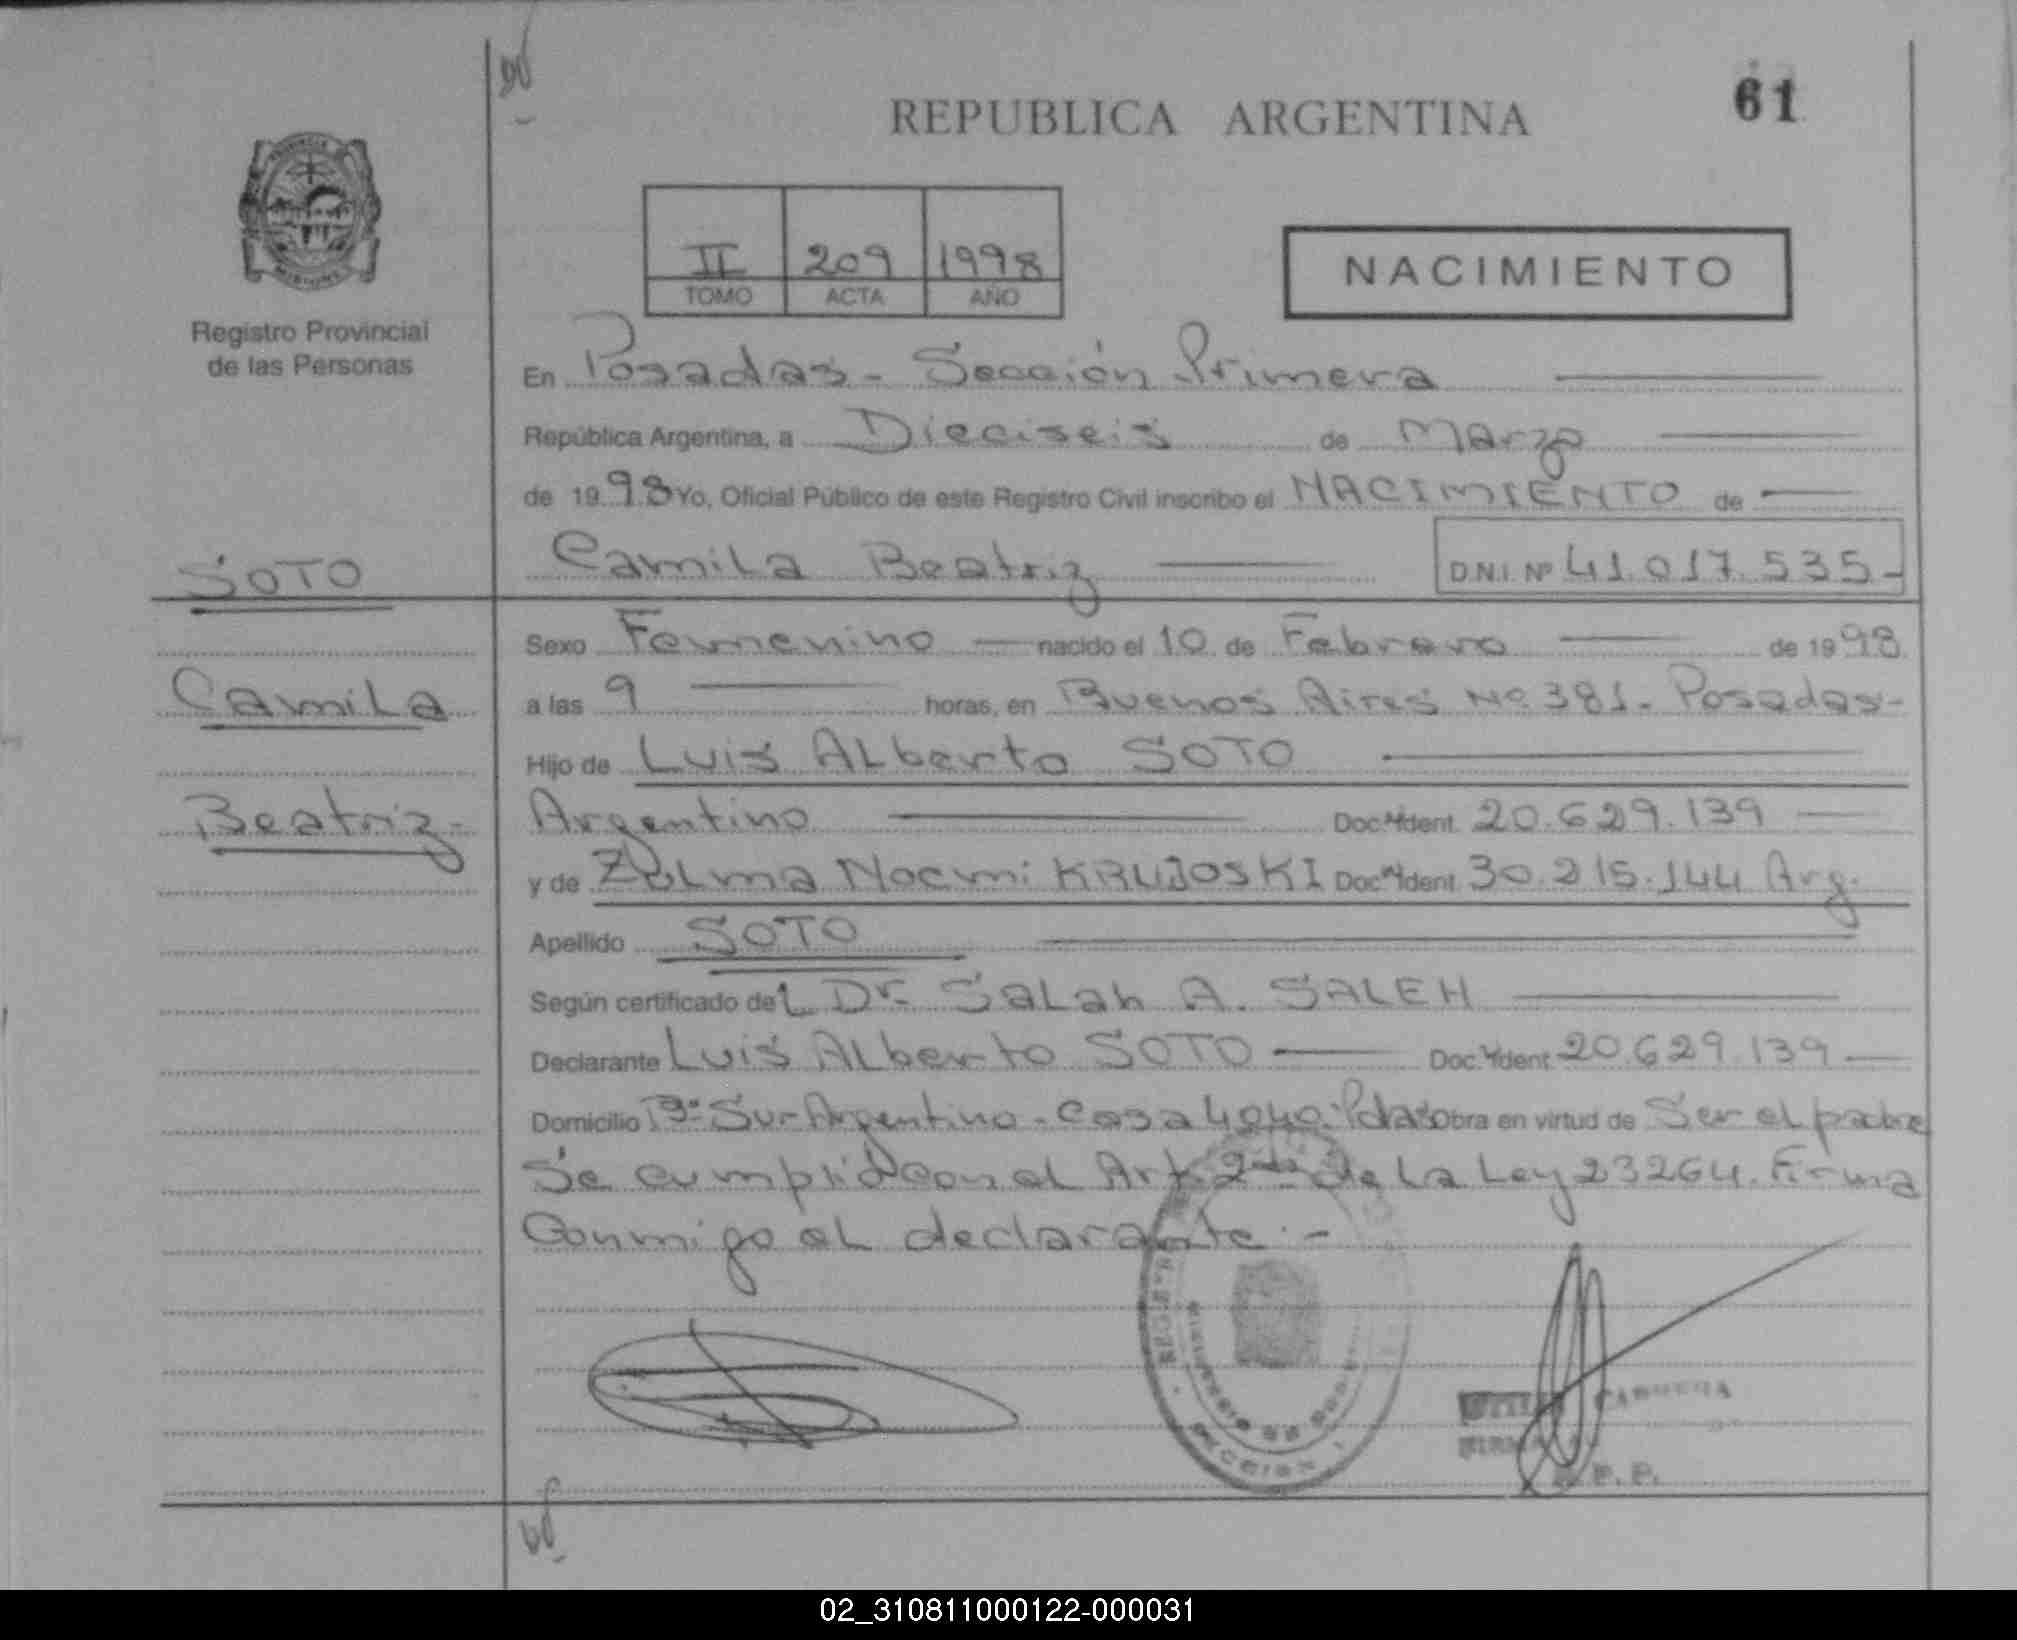 REPUBLICA ARGENTINA
61
II 209 1998
TOMO ACTA AÑO
NACIMIENTO
Registro Provincial
de las Personas
En Posadas - Sección Primera
República Argentina, a Dieciseis de Marzo
de 1998 Yo, Oficial Público de este Registro Civil inscribo el NACIMIENTO de
SOTO
Camila Beatriz D.N.I. Nº 41.017.535-
Sexo Femenino nacido el 10 de Febrero de 1998
Camila
a las 9 horas, en Buenos Aires Nº 381- Posadas-
Hijo de Luis Alberto SOTO
Beatriz-
Argentino Doc. Ident. 20.629.139
y de Noemi KRUJOSKI Doc. Ident. 30.215.144 Arg.
Apellido SOTO
Según certificado del Dr. Salah A. SALEH
Declarante Luis Alberto SOTO Doc. Ident. 20.629.139
Domicilio Bº Sur Argentino - Casa 4040. Pdas Obra en virtud de Ser el padre
Se cumplió con el Art. 2do de La Ley 23264. Firma
Conmigo el declarante.-
02_310811000122-000031